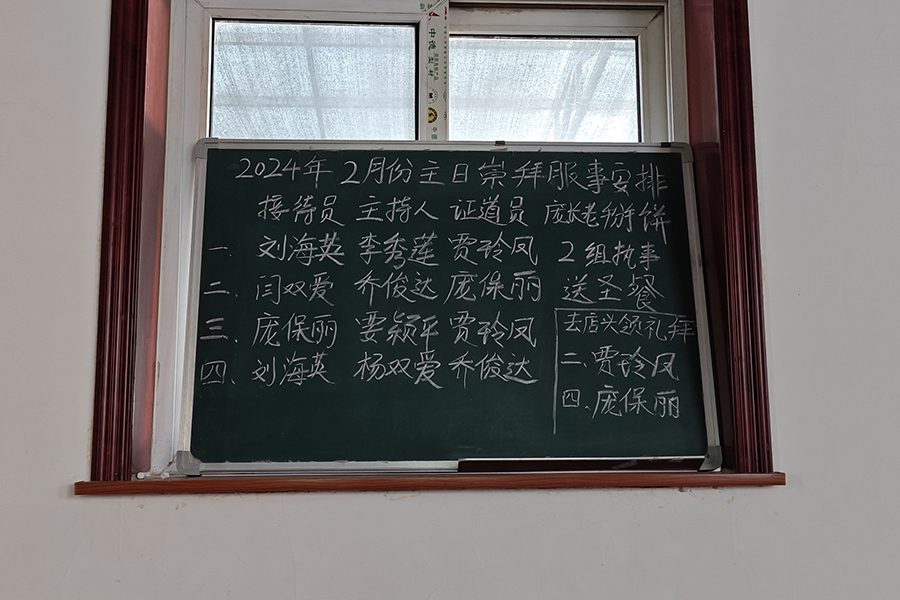 中德型材
2024年2月份主日崇拜服事安排
接待员 主持人 证道员 庞长老掰饼
一. 刘海英 李秀莲 贾玲凤 2组执事
二. 闫双爱 乔俊达 庞保丽 送圣餐
三. 庞保丽 要颖平 贾玲凤 去店头领礼拜
四. 刘海英 杨双爱 乔俊达 二.贾玲凤
四.庞保丽